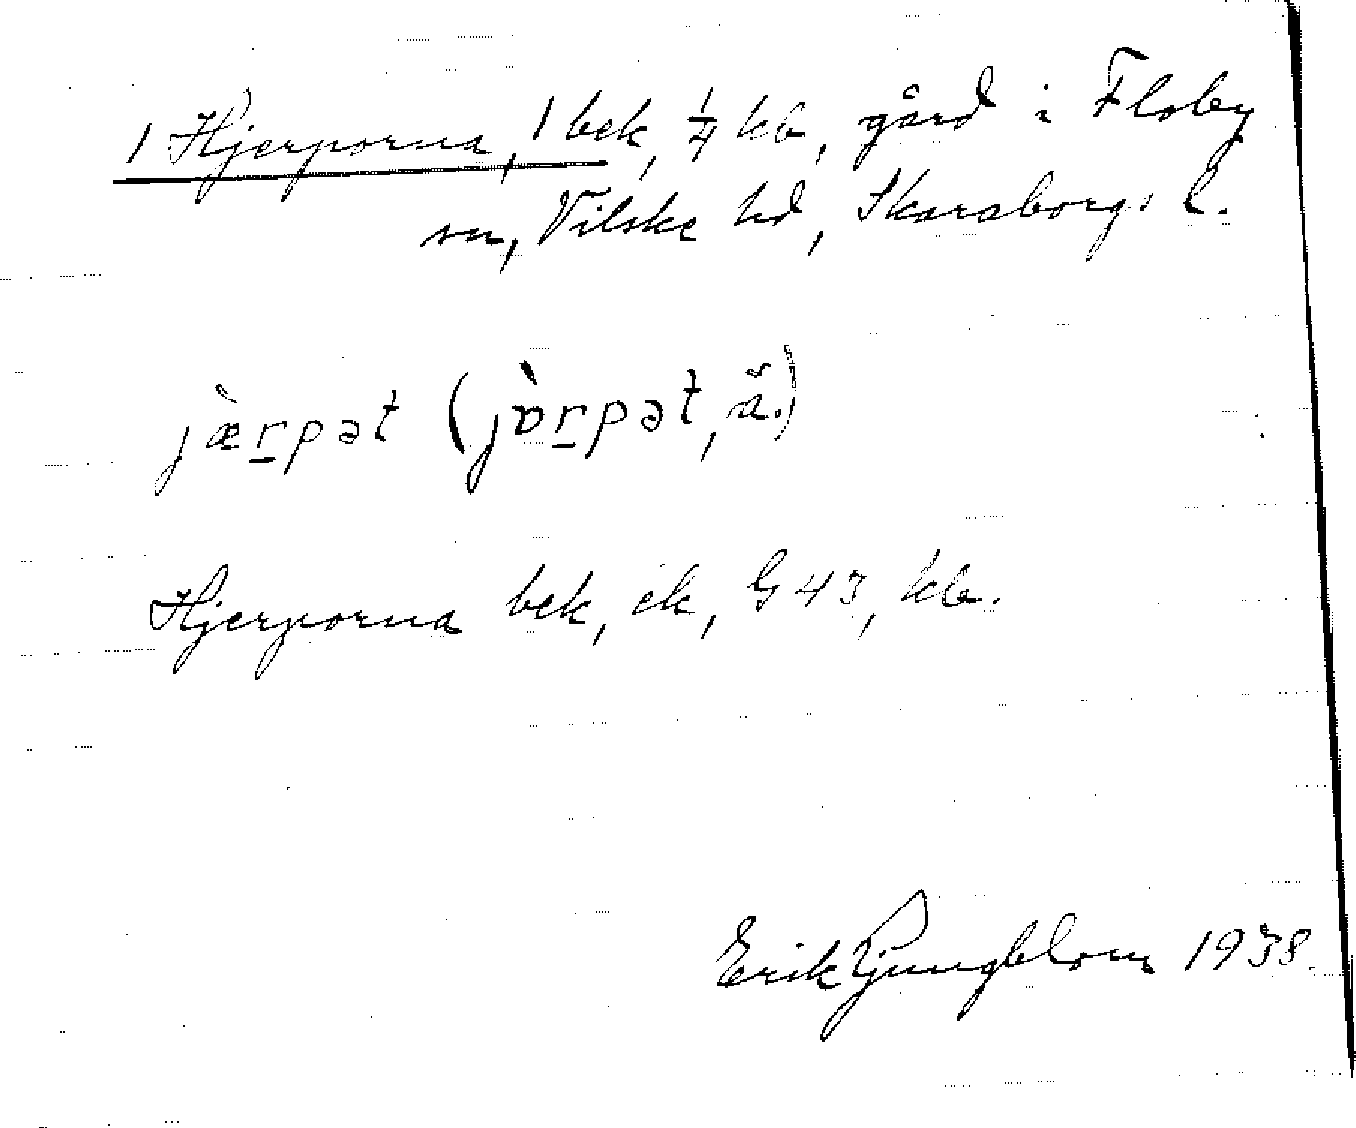 1 Hjerporna, 1 bek, 1/4 kb, gård i Floby
sn, Vilske hd, Skaraborgs l.
jæ̀r̠pət (jɒ̀r̠pət, ä.)
Hjerporna bek, ek, G 43, kb.
Erik Ljungblom 1938.